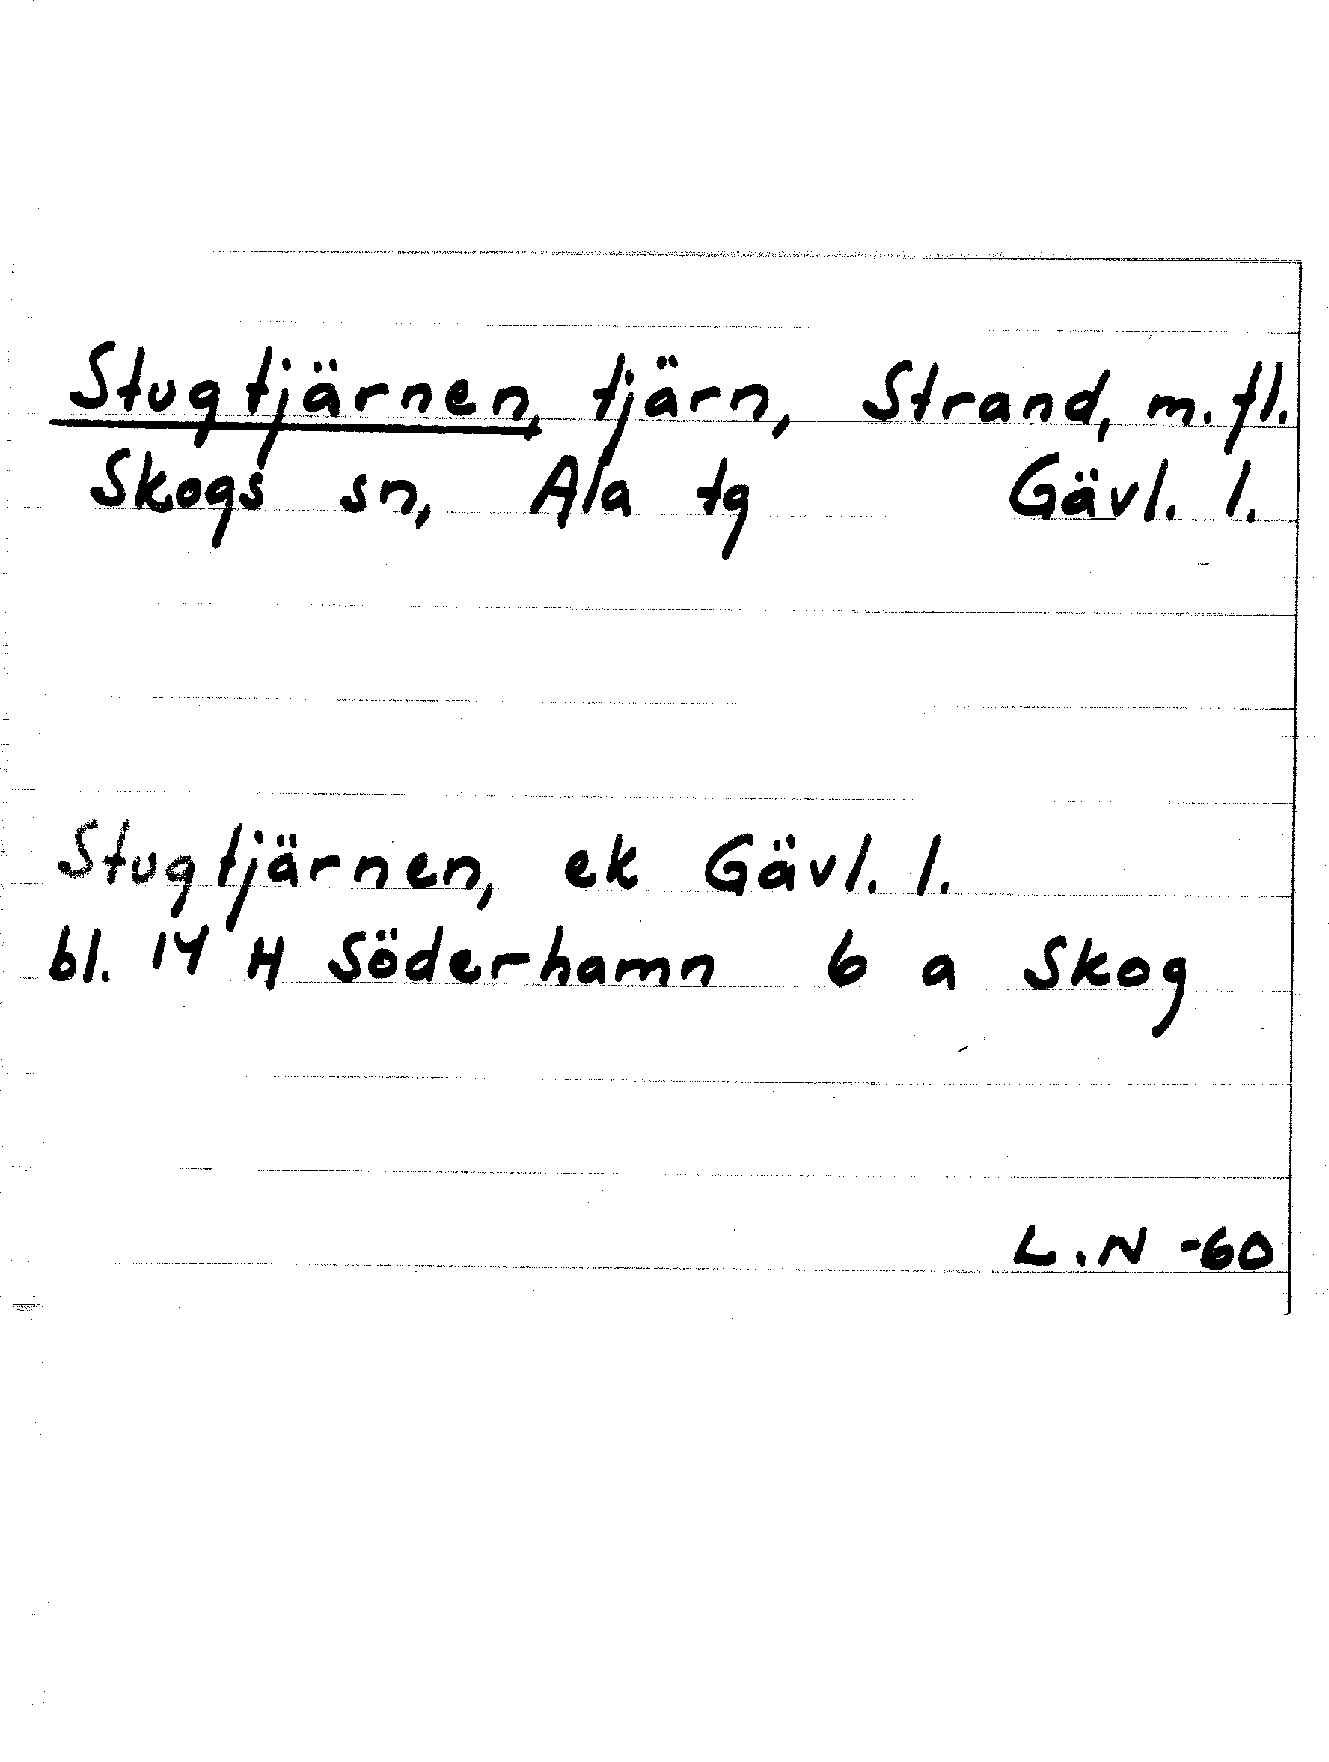 Stugtjärnen, tjärn, Strand, m.fl.
Skogs sn, Ala tg Gävl. l.
Stugtjärnen, ek Gävl. l.
bl. 14 H Söderhamn 6 a Skog
L.N -60